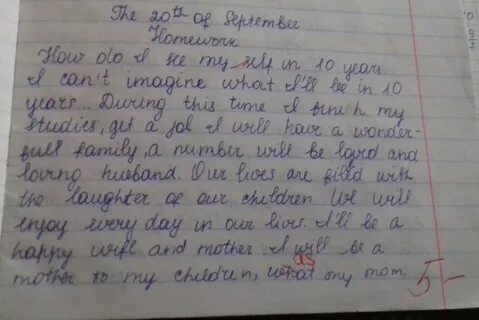 The 20th of September
Homework
How do I see my self in 10 years
I can't imagine what I'll be in 10
years... During this time I finish my
studies, get a job. I will have a wonder-
full family, a number will be loved and
loving husband. Our lives are filld with
the laughter of our children. We will
enjoy every day in our lives. I'll be a
happy wife and mother. I will be a
as
mother to my children, what my mom.
5-